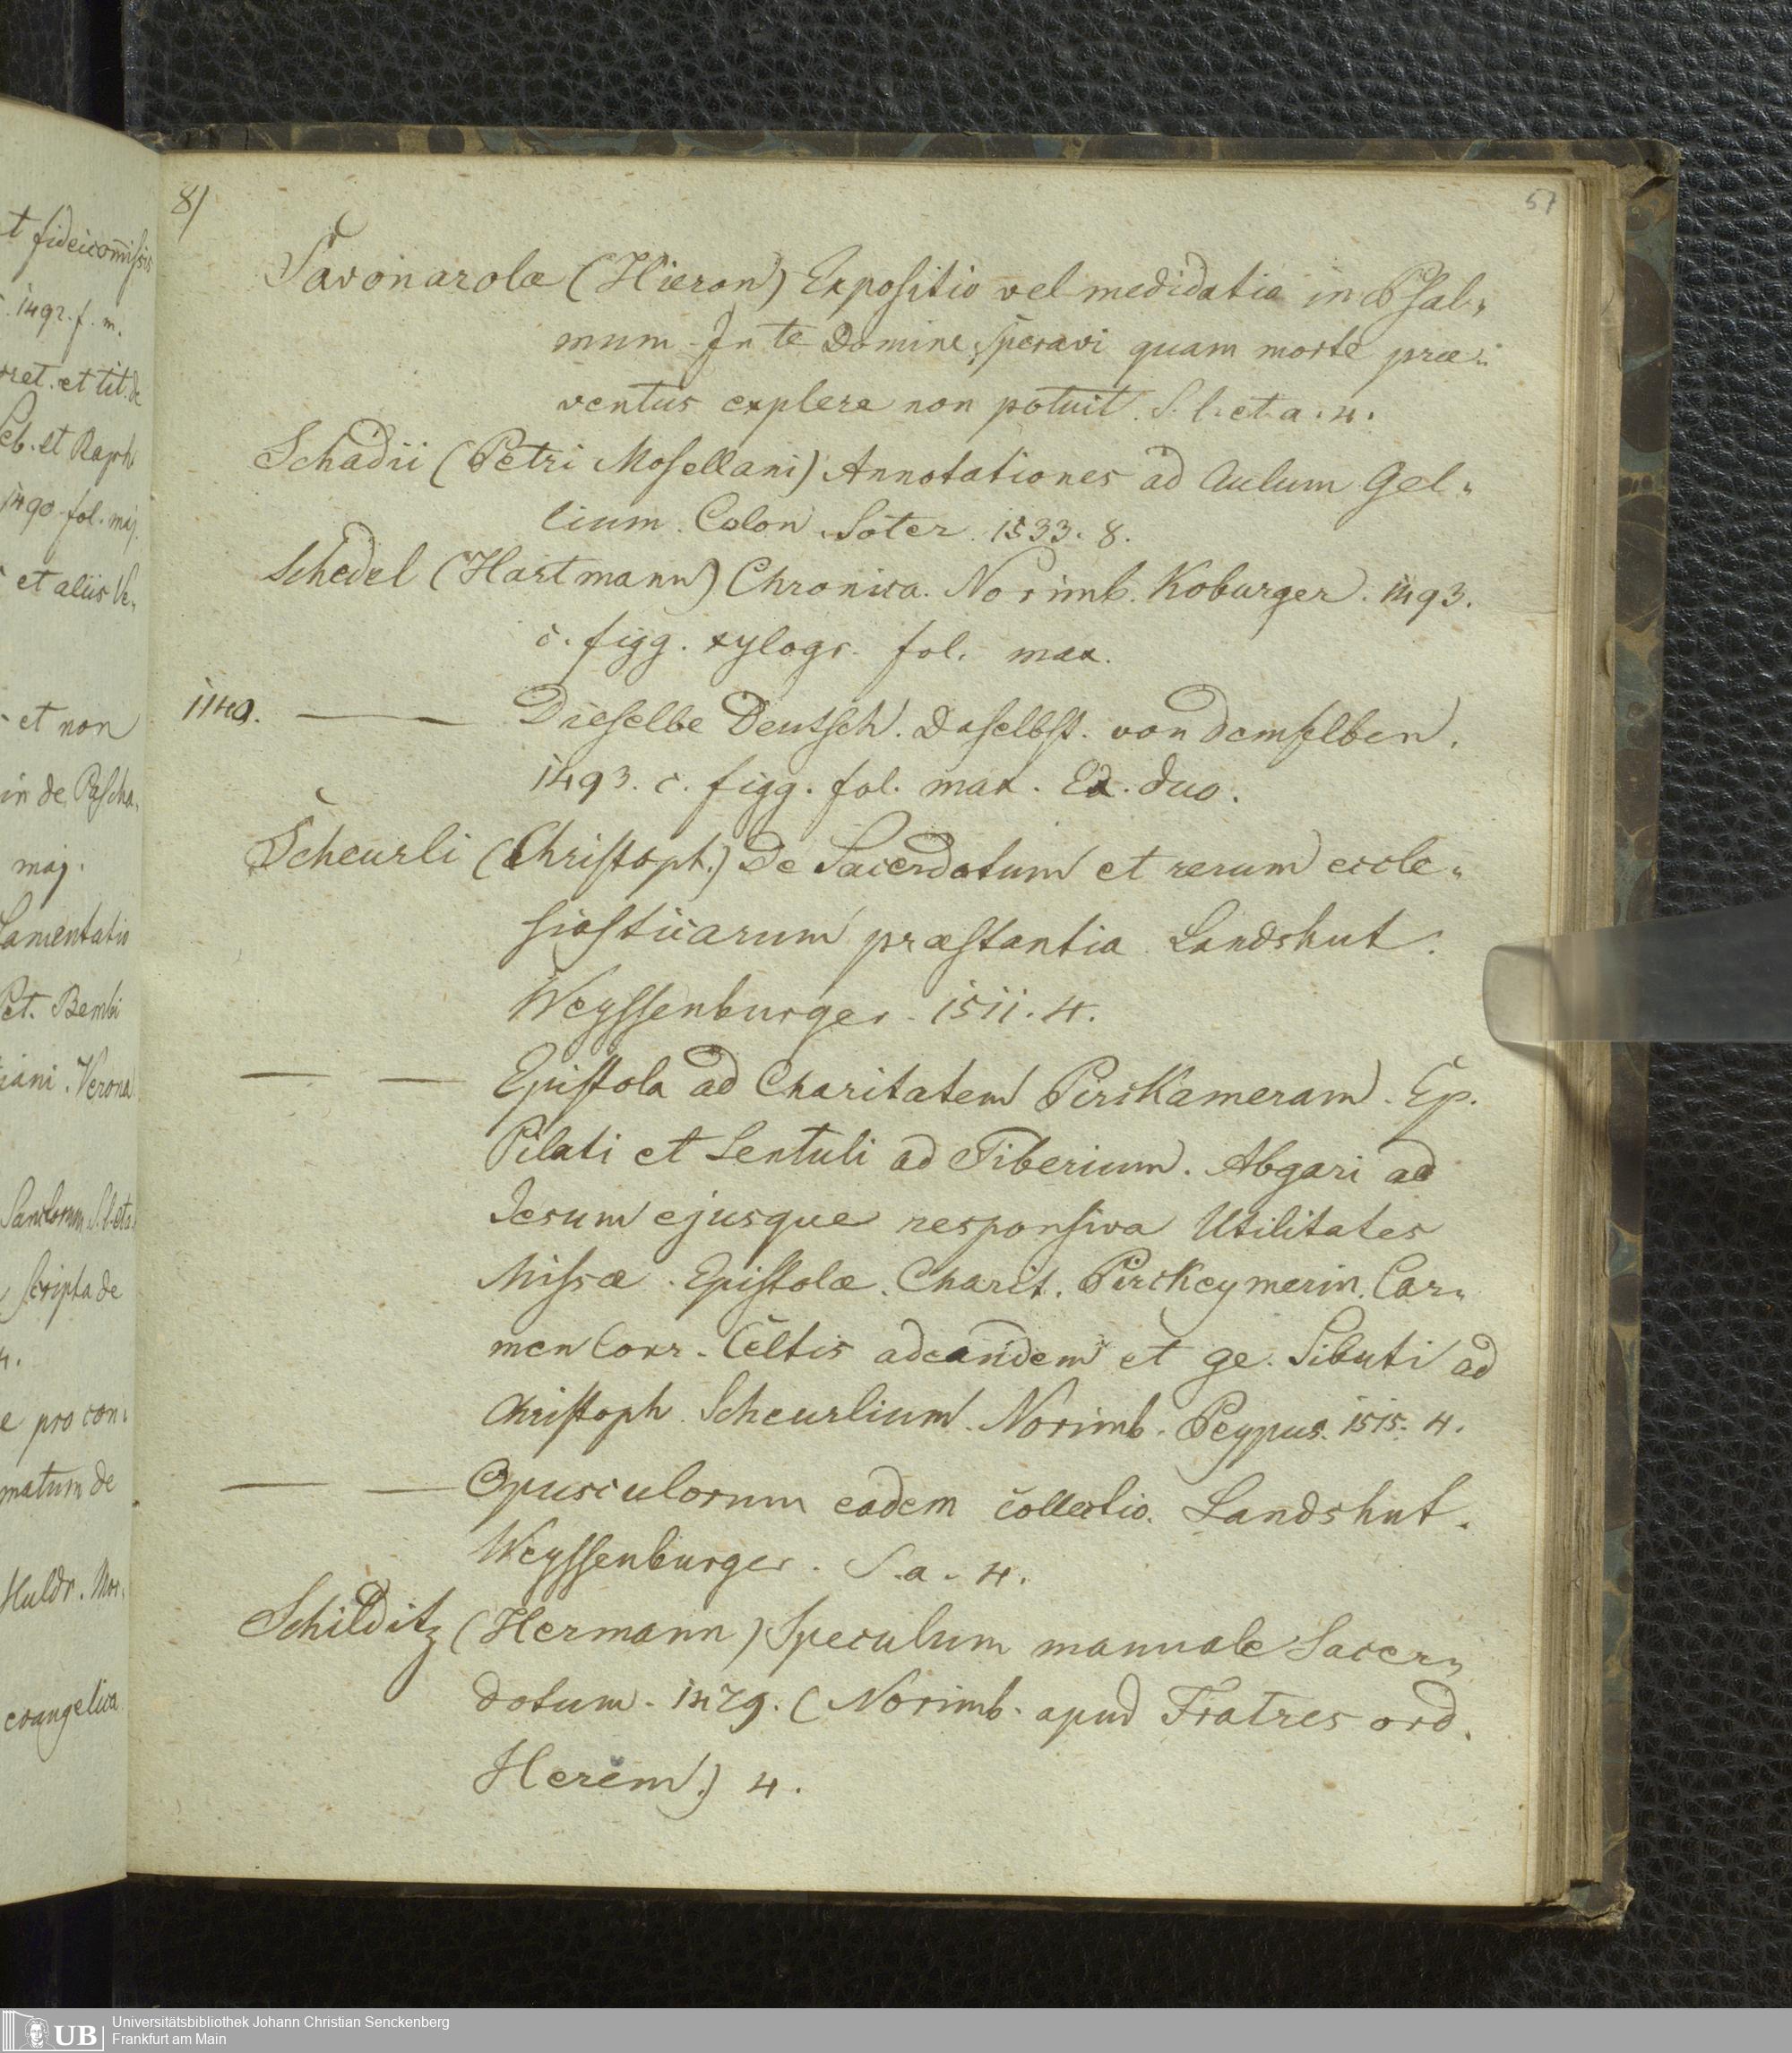 t fideicom̄iſsis
. 1492. f. m.
ret. et tit. de
Seb. et Raph.
1490. fol. maj.
et aliis Ve„
- et non
in de Pascha„
maj.
Lamentatio
Pet. Bembi
iani. Verona
Sanctorum. S. l. et a.
Scripta de
4.
e pro con„
matum de
Huldr. Mor„
evangelica
81
57
Savonarolæ (Hieron) Expoſitio vel medidatio in Pſal„
mum In te Domine, ſperavi quam morte præ„
ventus explere non potuit. S. l. et a. 4.
Schadii (Petri Moſellani) Annotationes ad Aulum Gel„
lium. Colon. Soter. 1533. 8.
Schedel (Hartmann) Chronica. Norimb. Koburger. 1493.
c. figg. xylogr. fol. max.
1140. —— Dieſelbe Deutſch. Daſelbſt. von demſelben.
1493. c. figg. fol. max. Ex. duo.
Scheurli (Chriſtoph.) De Sacerdotum et rerum eccle„
ſiaſticarum præſtantia. Landshut.
Weyſſenburger. 1511. 4.
— — Epiſtola ad Charitatem Pirckameram. Ep.
Pilati et Lentuli ad Tiberium. Abgari ad
Jesum ejusque responſiva Utilitates
Miſsæ. Epiſtolæ. Charit. Pirckeymerin. Car„
men Conr. Celtis ad eandem et ge. Sibuti ad
Chriſtoph. Scheurlium. Norimb. Peypus. 1515. 4.
— — Opusculorum eadem collectio. Landshut.
Weyſſenburger. S. a. 4.
Schilditz (Hermann) Speculum manuale Sacer„
dotum. 1479. (Norimb. apud Fratres ord.
Herem.) 4.
UB
Universitätsbibliothek Johann Christian Senckenberg
Frankfurt am Main